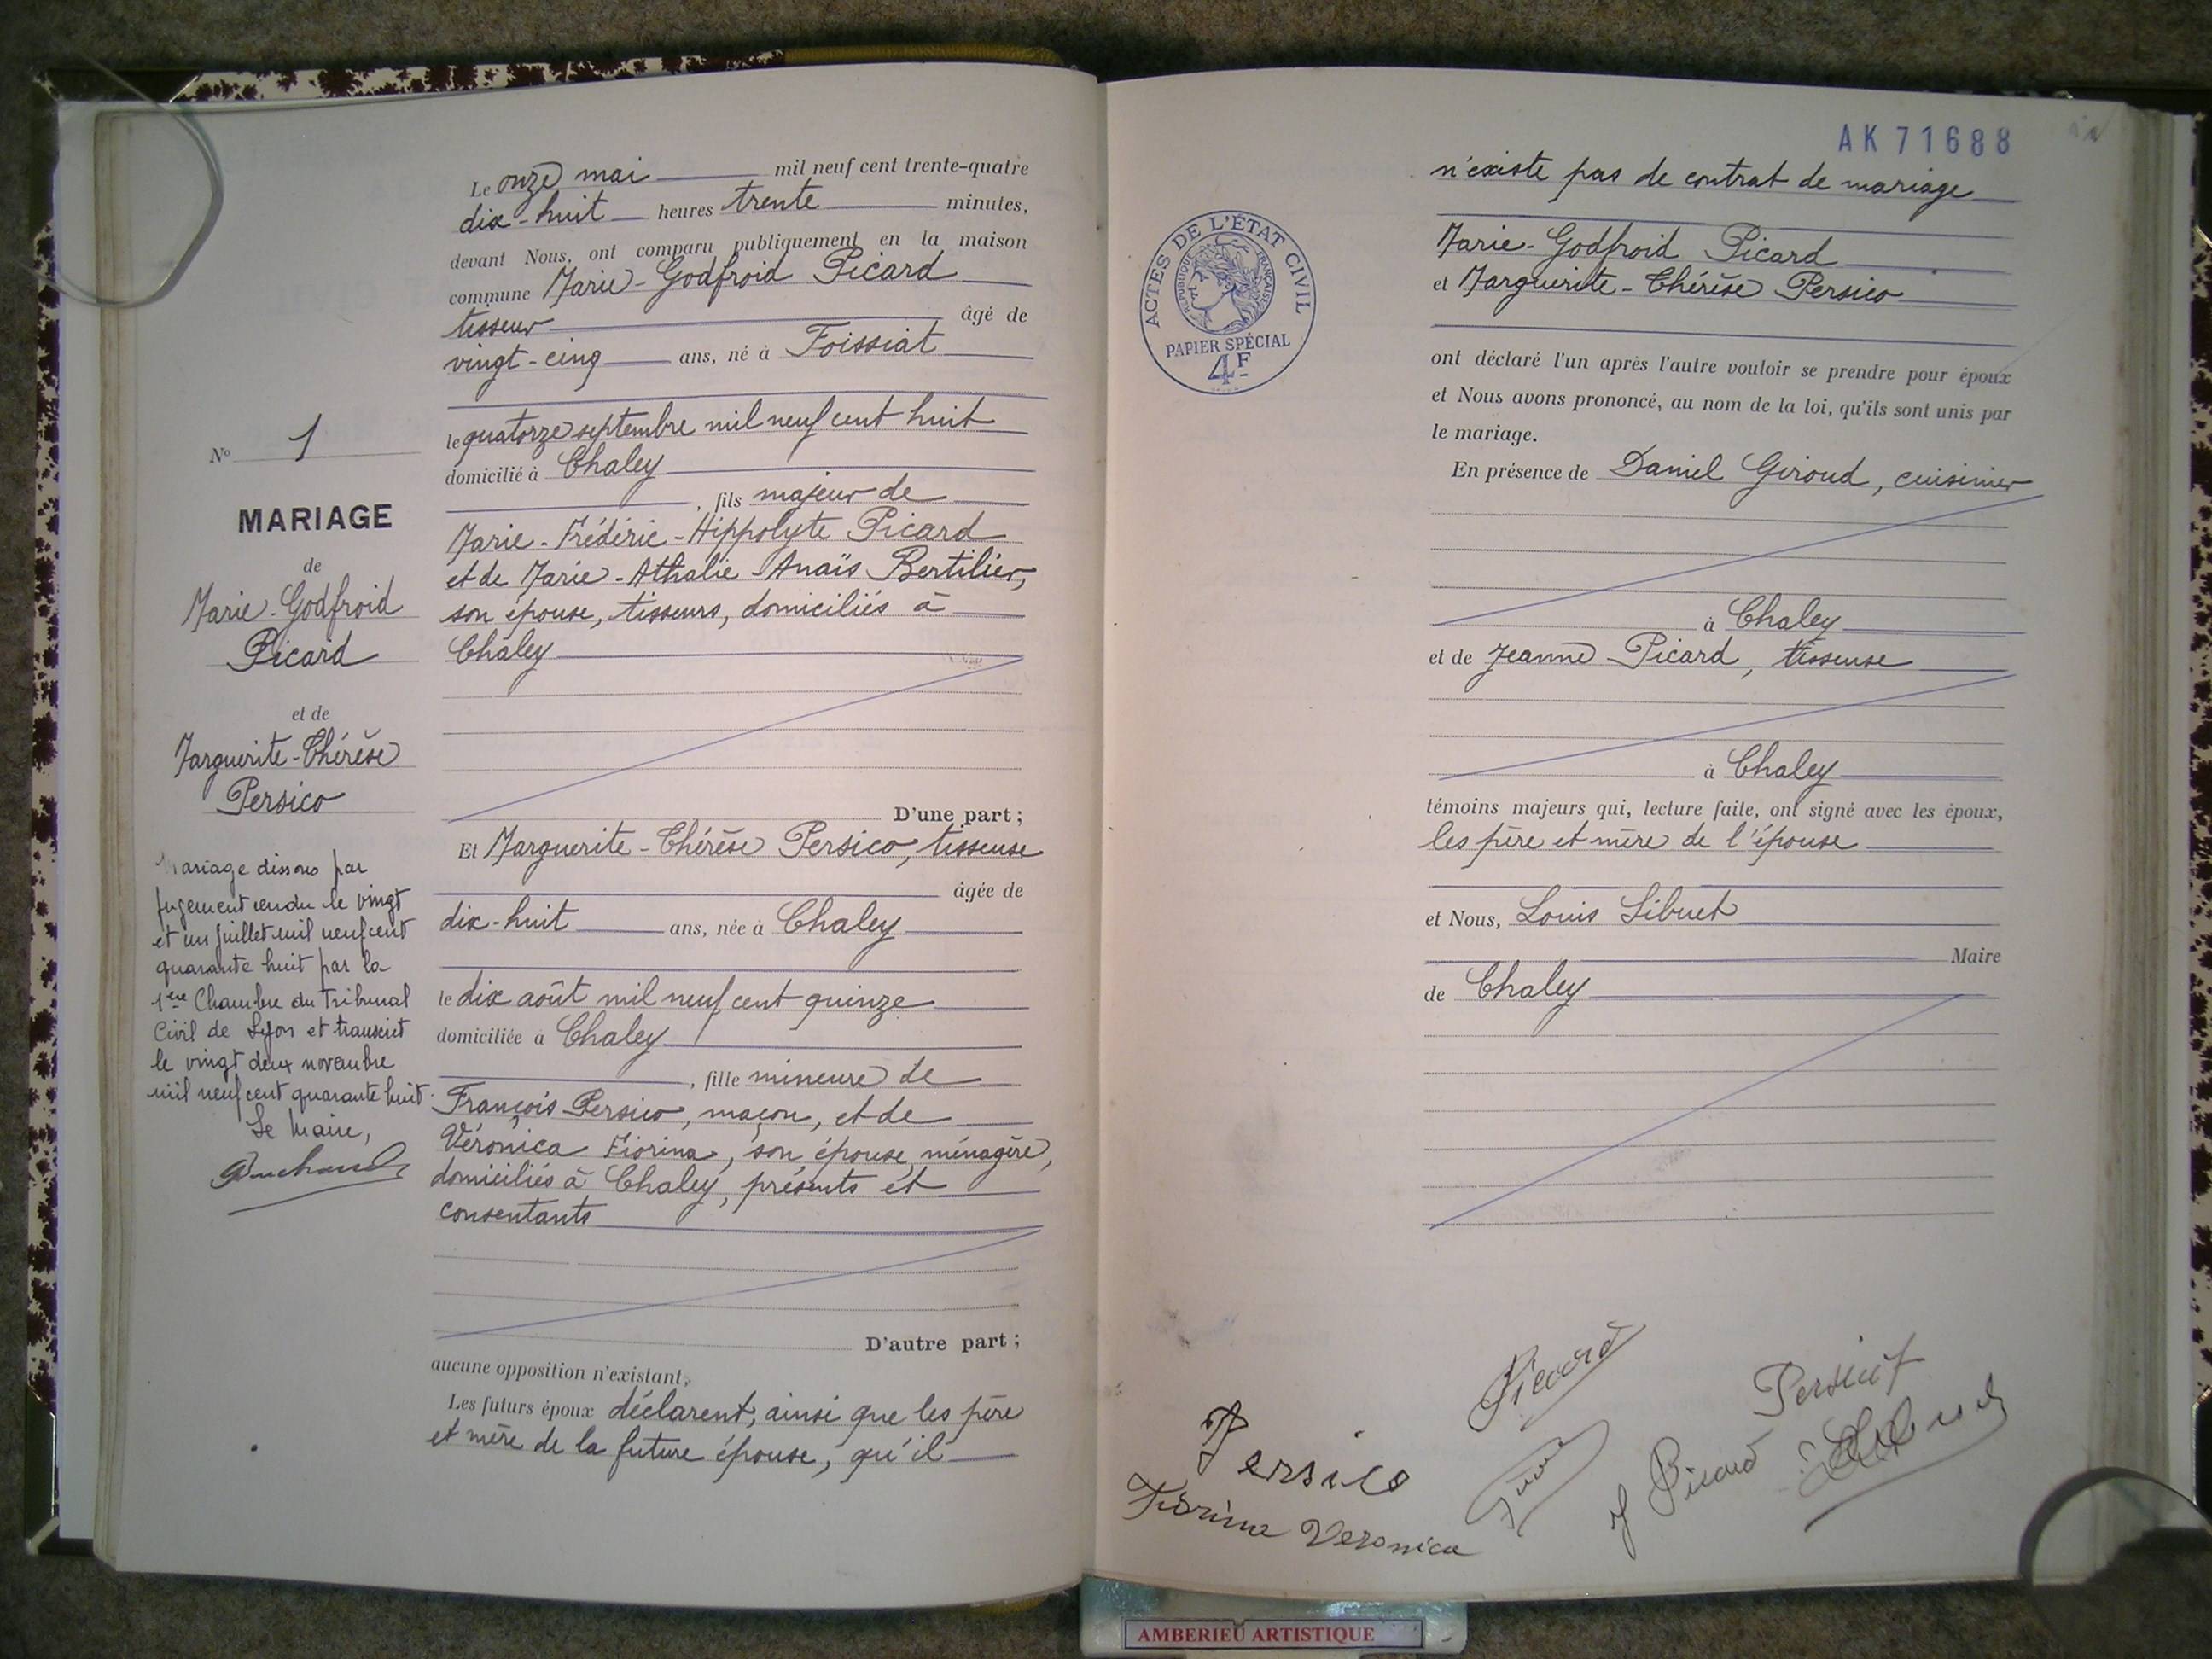 N° 1
MARIAGE
de
Marie-Godfroid
Picard
et de
Marguerite-Thérèse
Persico
Mariage dissous par
jugement rendu le vingt
et un juillet mil neuf cent
quarante huit par la
1ère Chambre du Tribunal
Civil de Lyon et transcrit
le vingt deux novembre
mil neuf cent quarante huit.
Le Maire,
Le onze mai mil neuf cent trente-quatre
dix-huit heures trente minutes,
devant Nous, ont comparu publiquement en la maison
commune Marie-Godfroid Picard
tisseur âgé de
vingt-cinq ans, né à Foissiat
le quatorze septembre mil neuf cent huit
domicilié à Chaley
, fils majeur de
Marie-Frédéric-Hippolyte Picard
et de Marie-Athalie-Anaïs Bertilier,
son épouse, tisseurs, domiciliés à
Chaley
D'une part ;
Et Marguerite-Thérèse Persico, tisseuse
âgée de
dix-huit ans, née à Chaley
le dix août mil neuf cent quinze
domiciliée à Chaley
, fille mineure de
François Persico, maçon, et de
Véronica Fiorina, son épouse, ménagère,
domiciliés à Chaley, présents et
consentants
D'autre part ;
aucune opposition n'existant,
Les futurs époux déclarent, ainsi que les père
et mère de la future épouse, qu'il
AK 71688
n'existe pas de contrat de mariage
ACTES DE L'ÉTAT CIVIL
RÉPUBLIQUE FRANÇAISE
PAPIER SPÉCIAL
4F
Marie-Godfroid Picard
et Marguerite-Thérèse Persico
ont déclaré l'un après l'autre vouloir se prendre pour époux
et Nous avons prononcé, au nom de la loi, qu'ils sont unis par
le mariage.
En présence de Daniel Giroud, cuisinier
à Chaley
et de Jeanne Picard, tisseuse
à Chaley
témoins majeurs qui, lecture faite, ont signé avec les époux,
les père et mère de l'épouse
et Nous, Louis Sibuet
Maire
de Chaley
Picard
Persico
Persico
J Picard
Fiorina Veronica
AMBERIEU ARTISTIQUE